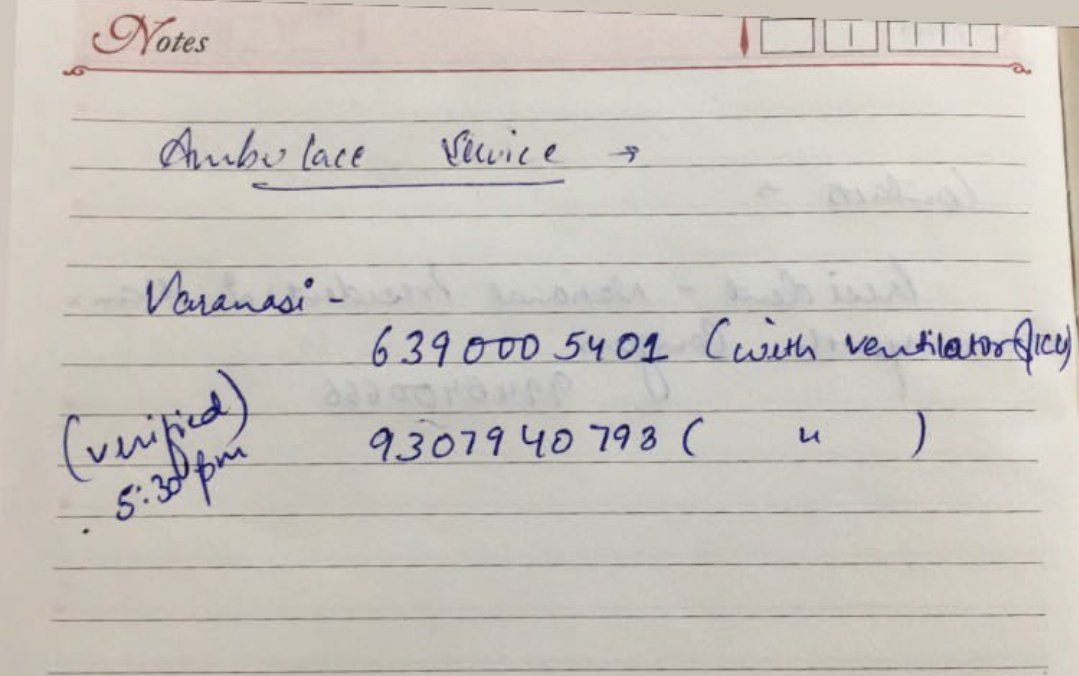 Notes
Ambulace Service →
Varanasi -
6390005401 (with ventilator & ICU)
(verified) 9307940793 ( " )
5:30 pm